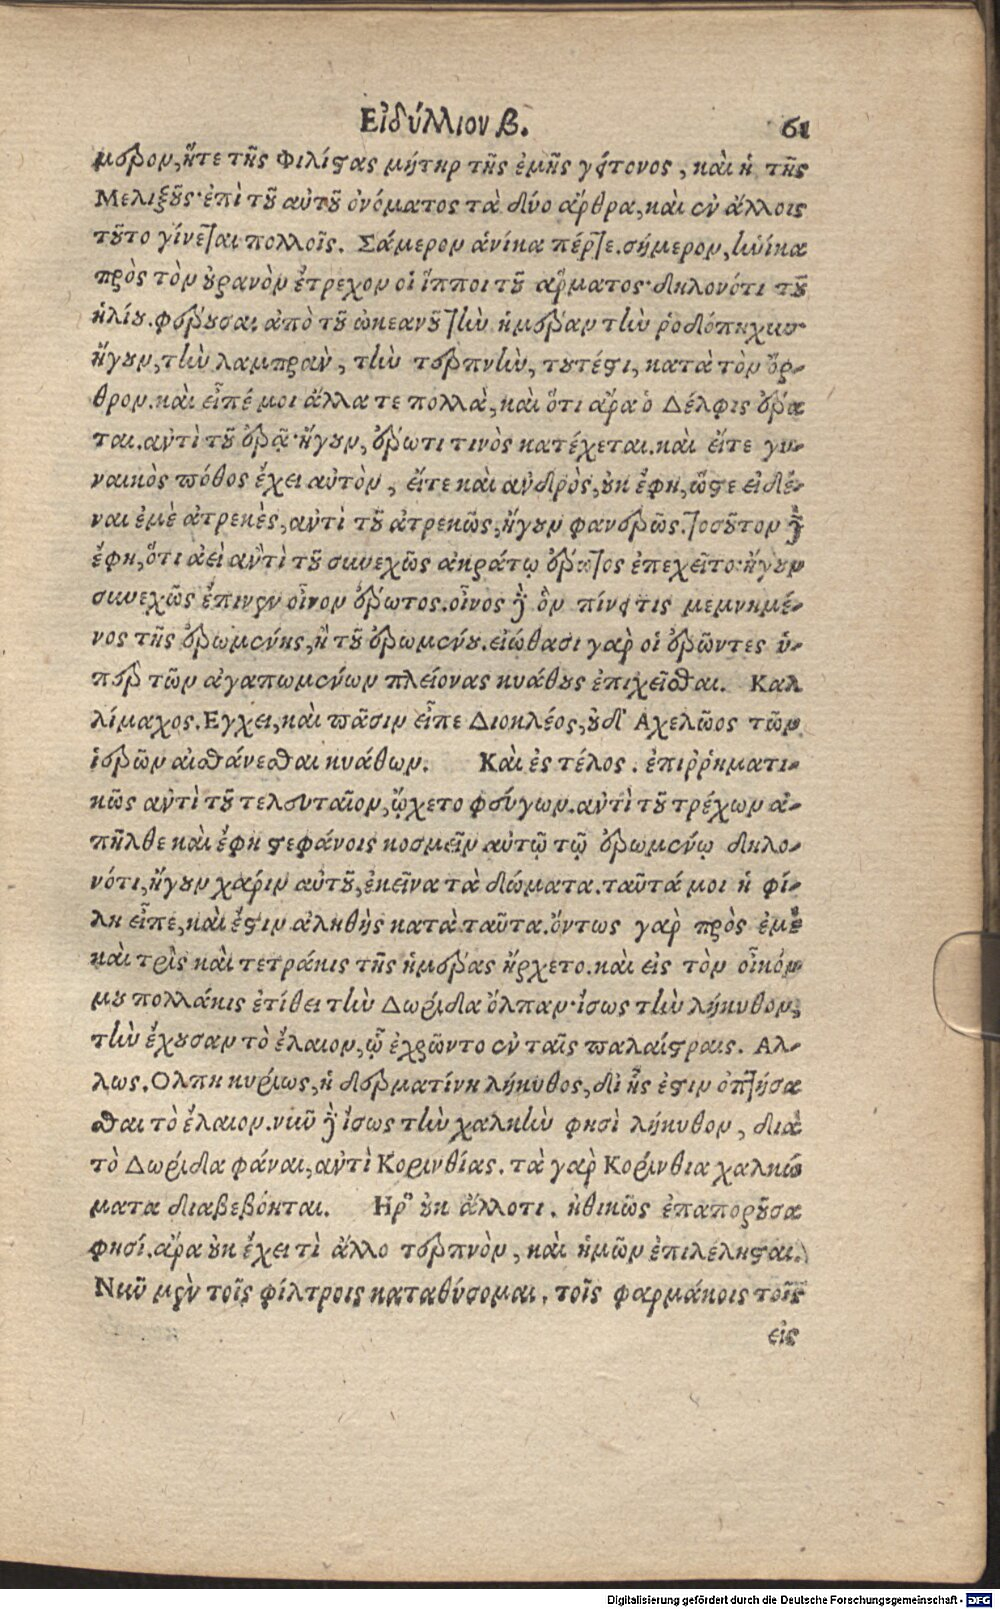 Εἰδύλλιον β. 61
μερον, ἥτε τῆς Φιλίστας μήτηρ τῆς ἐμῆς γείτονος, καὶ ἡ τῆς
Μελιξοῦς· ἐπὶ τοῦ αὐτοῦ ὀνόματος τὰ δύο ἄρθρα, καὶ ἐν ἄλλοις
τοῦτο γίνεται πολλοῖς. Σάμερον ἁνίκα πέρτε. σήμερον, ἡνίκα
πρὸς τὸν οὐρανὸν ἔτρεχον οἱ ἵπποι τοῦ ἅρματος· δηλονότι τοῦ
ἡλίου. φέρουσαι ἀπὸ τοῦ ὠκεανοῦ τὴν ἡμέραν τὴν ῥοδόπηχυν·
ἤγουν, τὴν λαμπρὰν, τὴν τερπνὴν, τουτέστι, κατὰ τὸν ὄρ-
θρον. καὶ εἶπέ μοι ἄλλα τε πολλὰ, καὶ ὅτι ἄρα ὁ Δέλφις ἐρᾶ
ται. ἀντὶ τοῦ ἐρᾷ· ἤγουν, ἔρωτι τινὸς κατέχεται. καὶ εἴτε γυ-
ναικὸς πόθος ἔχει αὐτὸν, εἴτε καὶ ἀνδρὸς, οὐκ ἔφη, ὥστε εἰδέ-
ναι ἐμὲ ἀτρεκὲς, ἀντὶ τοῦ ἀτρεκῶς, ἤγουν φανερῶς. τοσοῦτον δὲ
ἔφη, ὅτι ἀεὶ ἀντὶ τοῦ συνεχῶς ἀκράτῳ ἔρωτος ἐπεχεῖτο· ἤγουν
συνεχῶς ἔπινεν οἶνον ἔρωτος. οἶνος δὲ ὃν πίνει τις μεμνημέ-
νος τῆς ἐρωμένης, ἢ τοῦ ἐρωμένου. εἰώθασι γὰρ οἱ ἐρῶντες ὑ-
πὲρ τῶν ἀγαπωμένων πλείονας κυάθους ἐπιχεῖσθαι. Καλ
λίμαχος. Εγχει, καὶ πᾶσιν εἶπε Διοκλέος, οὐδ' Αχελῶος τῶν
ἱερῶν αἰσθάνεσθαι κυάθων. Καὶ ἐς τέλος. ἐπιῤῥηματι-
κῶς ἀντὶ τοῦ τελευταῖον, ᾤχετο φεύγων. ἀντὶ τοῦ τρέχων ἀ-
πῆλθε καὶ ἔφη στεφάνοις κοσμεῖν αὐτῷ τῷ ἐρωμένῳ δηλο-
νότι, ἤγουν χάριν αὐτοῦ, ἐκεῖνα τὰ δώματα. ταῦτά μοι ἡ φί-
λη εἶπε, καὶ ἔστιν ἀληθὴς κατὰ ταῦτα. ὄντως γὰρ πρὸς ἐμὲ
καὶ τρὶς καὶ τετράκις τῆς ἡμέρας ἤρχετο. καὶ εἰς τὸν οἶκόν
μου πολλάκις ἐτίθει τὴν Δωρίδα ὄλπαν· ἴσως τὴν λήκυθον,
τὴν ἔχουσαν τὸ ἔλαιον, ᾧ ἐχρῶντο ἐν ταῖς παλαίστραις. Αλ-
λως. Ολπη κυρίως, ἡ δερματίνη λήκυθος, δι' ἧς ἐστιν ὀπτήσα
σθαι τὸ ἔλαιον. νῦν δὲ ἴσως τὴν χαλκὴν φησὶ λήκυθον, διὰ
τὸ Δωρίδα φάναι, ἀντὶ Κορινθίας. τὰ γὰρ Κορίνθια χαλκώ
ματα διαβεβόηται. Ηρ' οὐκ ἄλλοτι. ἠθικῶς ἐπαποροῦσα
φησί. ἆρα οὐκ ἔχει τὶ ἄλλο τερπνὸν, καὶ ἡμῶν ἐπιλέλησται.
Νῦν μὲν τοῖς φίλτροις καταθύσομαι. τοῖς φαρμάκοις τοῖς
εἰς
Digitalisierung gefördert durch die Deutsche Forschungsgemeinschaft - DFG